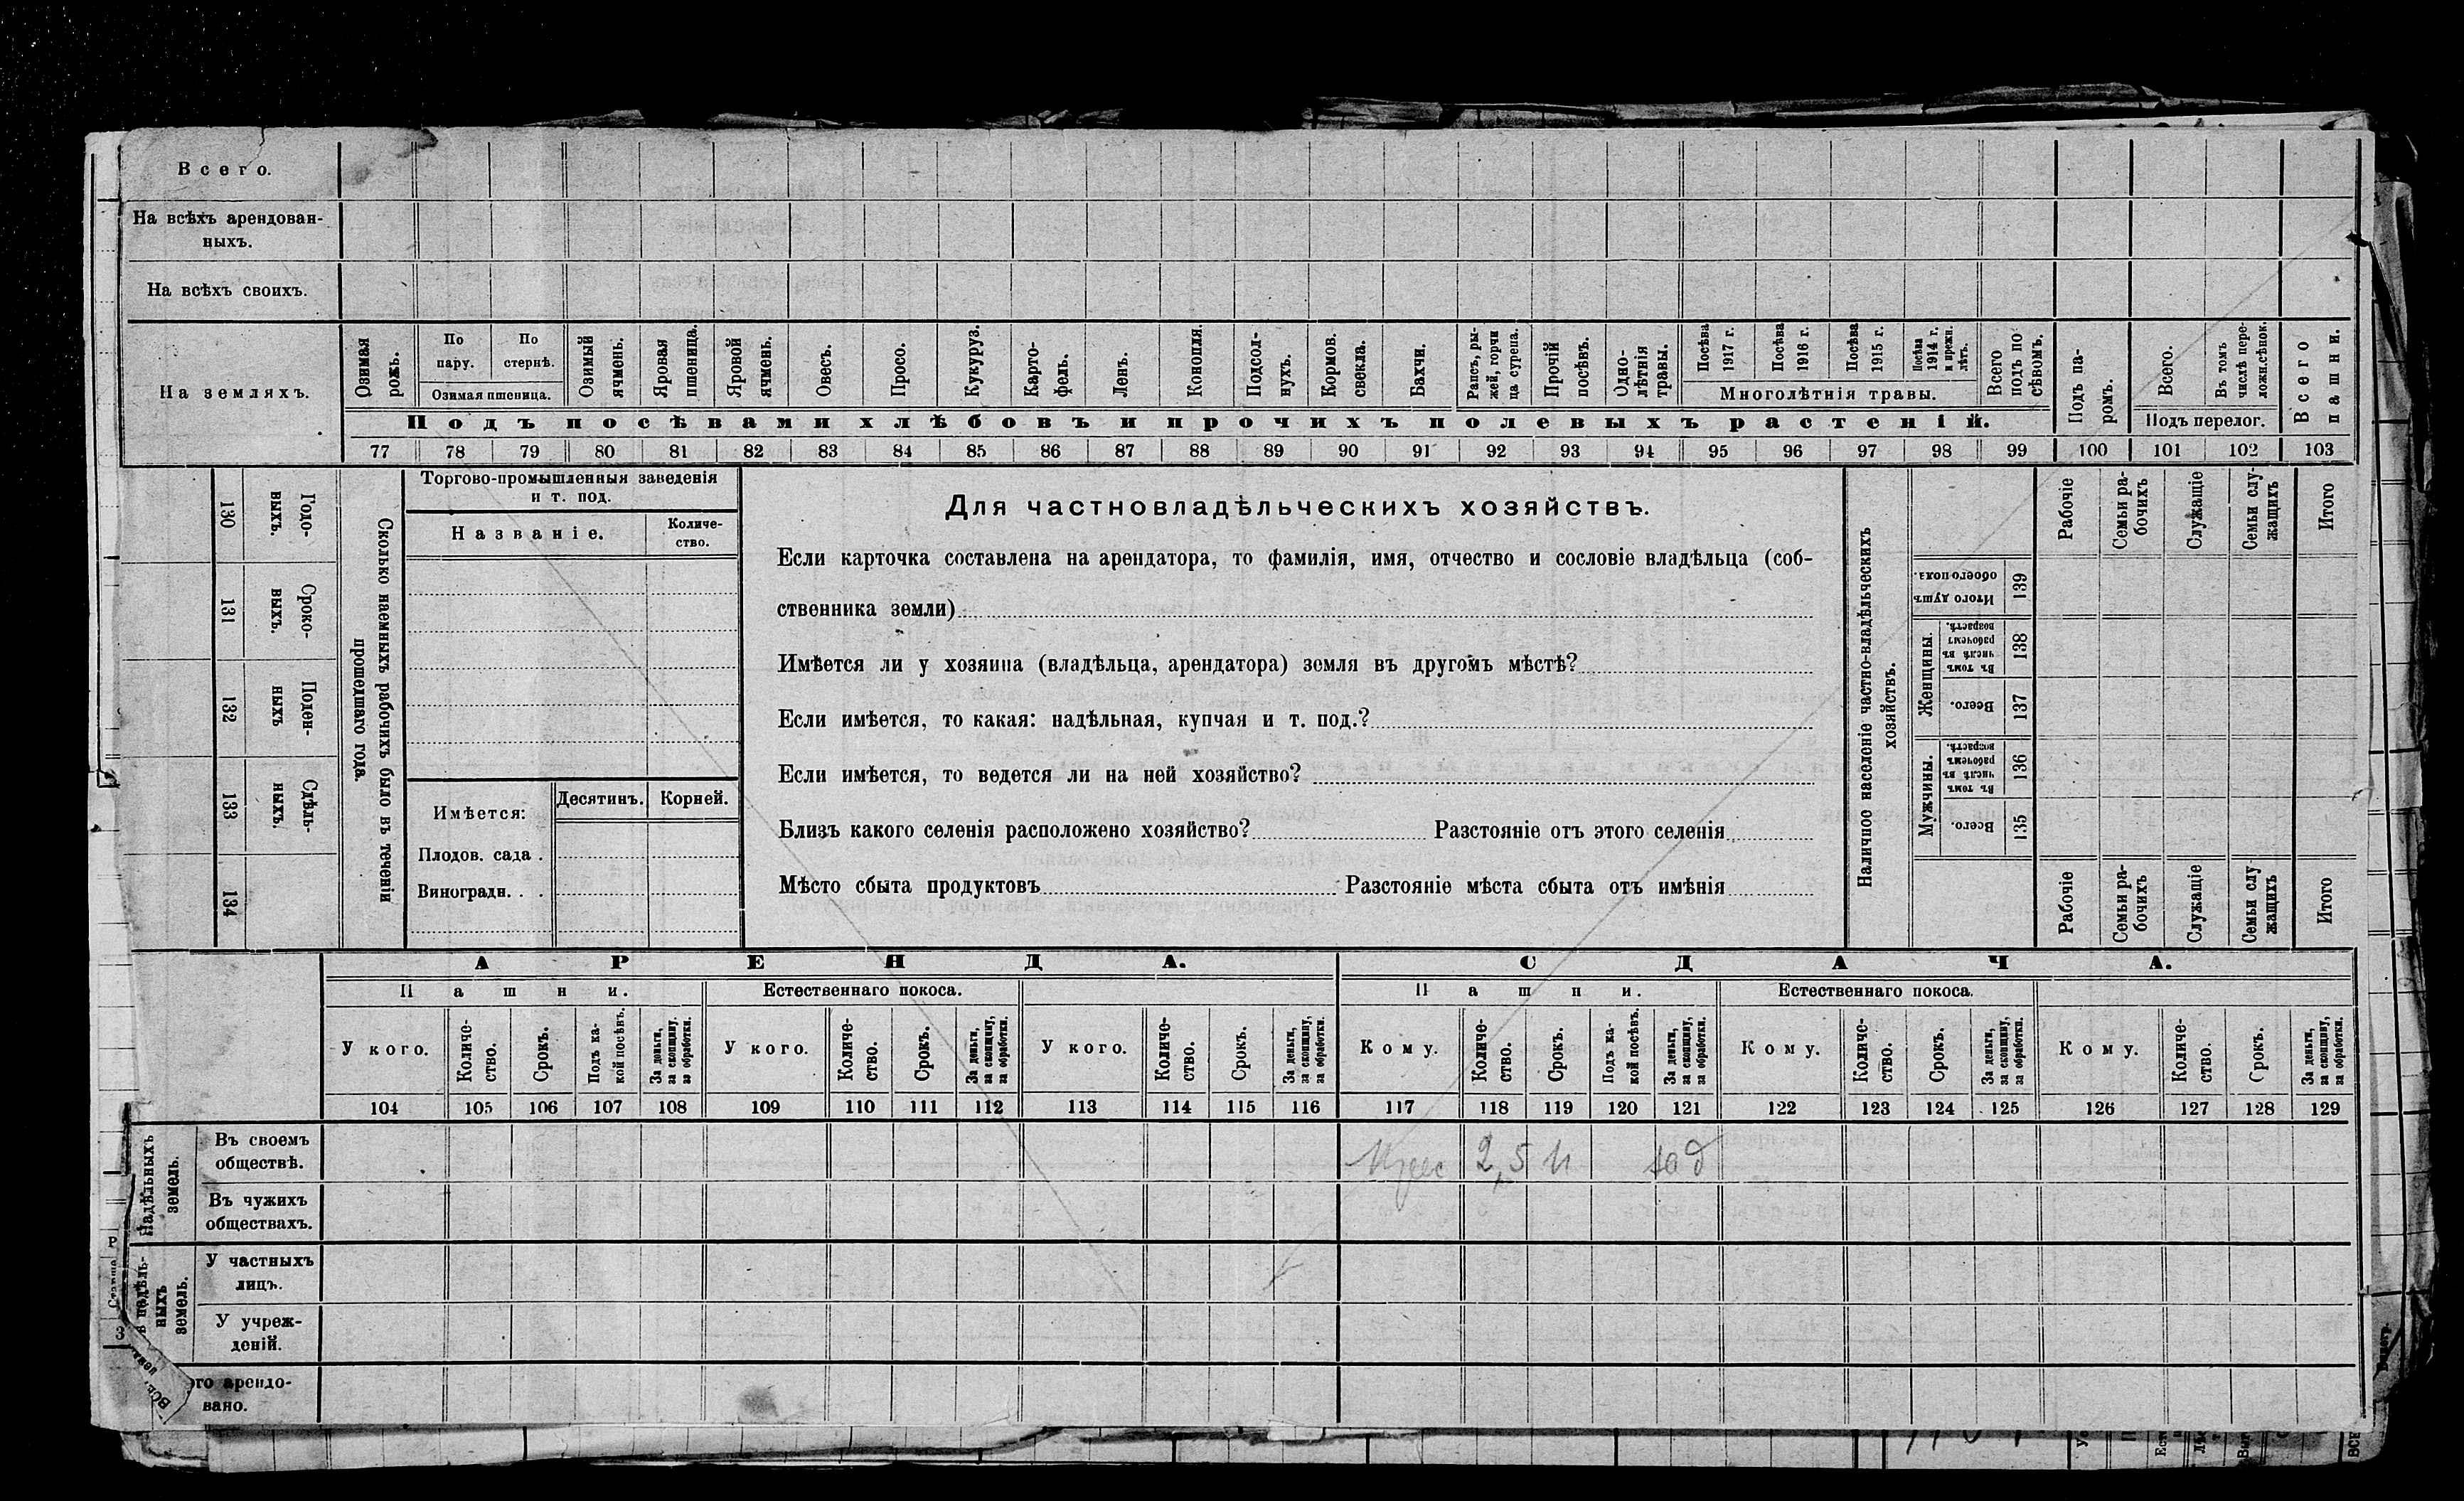 Всего.
На всѣхъ арендован-
ныхъ.
На всѣхъ своихъ.
На земляхъ.
Озимая рожь.
По пару.
По стернѣ.
Озимая пшеница.
Озимый ячмень.
Яровая пшеница.
Яровой ячмень.
Овесъ.
Просо.
Кукуруз.
Карто-
фель.
Ленъ.
Конопля.
Подсол-
нухъ.
Кормов. свекла.
Бахчи.
Рапсъ, ры-
жей, горчи
ца сурепа.
Прочій посѣвъ.
Одно-
лѣтнія
травы.
Посѣва 1917 г.
Посѣва 1916 г.
Посѣва 1915 г.
Посѣва 1914 г. и прежн. лѣтъ.
Многолѣтнія травы.
Всего подъ по
сѣвомъ.
Подъ посѣвами хлѣбовъ и прочихъ полевыхъ растеній.
Подъ па-
ромъ.
Всего.
Въ томъ числѣ пере-
ложн. сѣнок.
Подъ перелог.
Всего пашни.
77 78 79 80 81 82 83 84 85 86 87 88 89 90 91 92 93 94 95 96 97 98 99 100 101 102 103
130 Годо-
выхъ.
131 Сроко-
выхъ.
132 Поден-
ныхъ
133 Сдѣль-
ныхъ.
134
Сколько наемныхъ рабочихъ было въ теченіи
прошедшаго года.
Торгово-промышленныя заведенія
и т. под.
Названіе.
Количе-
ство.
Имѣется:
Десятинъ.
Корней.
Плодов. сада .
Виноградн. . .
Для частновладѣльческихъ хозяйствъ.
Если карточка составлена на арендатора, то фамилія, имя, отчество и сословіе владѣльца (соб-
ственника земли)
Имѣется ли у хозяина (владѣльца, арендатора) земля въ другомъ мѣстѣ?
Если имѣется, то какая: надѣльная, купчая и т. под.?
Если имѣется, то ведется ли на ней хозяйство?
Близъ какого селенія расположено хозяйство? Разстояніе отъ этого селенія
Мѣсто сбыта продуктовъ Разстояніе мѣста сбыта отъ имѣнія
Наличное населеніе частно-владѣльческихъ
хозяйствъ.
Итого душъ
обоего пола.
139
Женщины.
Въ томъ
числѣ въ
рабочемъ
возрастѣ.
138
Всего.
137
Мужчины.
Въ томъ
числѣ въ
рабочемъ
возрастѣ.
136
Всего.
135
Рабочіе
Семьи ра-
бочихъ
Служащіе
Семьи слу-
жащихъ
Итого
Рабочіе
Семьи ра-
бочихъ
Служащіе
Семьи слу
жащихъ
Итого
АРЕНДА.
СДАЧА.
Пашни.
Естественнаго покоса.
Пашни.
Естественнаго покоса.
У кого.
Количе-
ство.
Срокъ.
Подъ ка-
кой посѣвъ.
За деньги,
за скопщину,
за обработки.
У кого.
Количе-
ство.
Срокъ.
За деньги,
за скопщину,
за обработки.
У кого.
Количе-
ство.
Срокъ.
За деньги,
за скопщину,
за обработки.
Кому.
Количе-
ство.
Срокъ.
Подъ ка-
кой посѣвъ.
За деньги,
за скопщину,
за обработки.
Кому.
Количе-
ство.
Срокъ.
За деньги,
за скопщину,
за обработки.
Кому.
Количе-
ство.
Срокъ.
За деньги,
за скопщину,
за обработки.
104 105 106 107 108 109 110 111 112 113 114 115 116 117 118 119 120 121 122 123 124 125 126 127 128 129
Надѣльныхъ
земель.
Въ своемъ
обществѣ.
2,5
Въ чужихъ
обществахъ.
земель.
У частныхъ
лицъ.
У учреж-
деній.
го арендо-
вано.